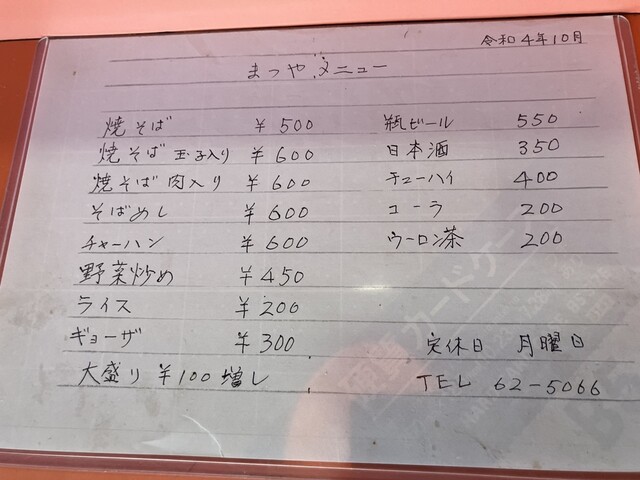 令和4年10月
まつやメニュー
焼そば ¥500
焼そば玉子入り ¥600
焼そば肉入り ¥600
そばめし ¥600
チャーハン ¥600
野菜炒め ¥450
ライス ¥200
ギョーザ ¥300
大盛り ¥100増し
瓶ビール 550
日本酒 350
チューハイ 400
コーラ 200
ウーロン茶 200
定休日 月曜日
TEL 62-5066
カードケース